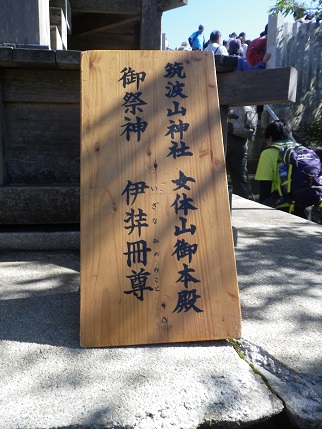 筑波山神社 女体山御本殿
御祭神 伊弉冊尊
いざなみのみこと